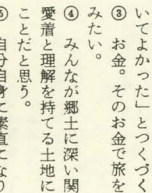 いてよかった」とつくづく
③　お金。そのお金で旅を
みたい。
④　みんなが郷土に深い関
愛着と理解を持てる土地に
ことだと思う。
⑤　自分自身に素直になり